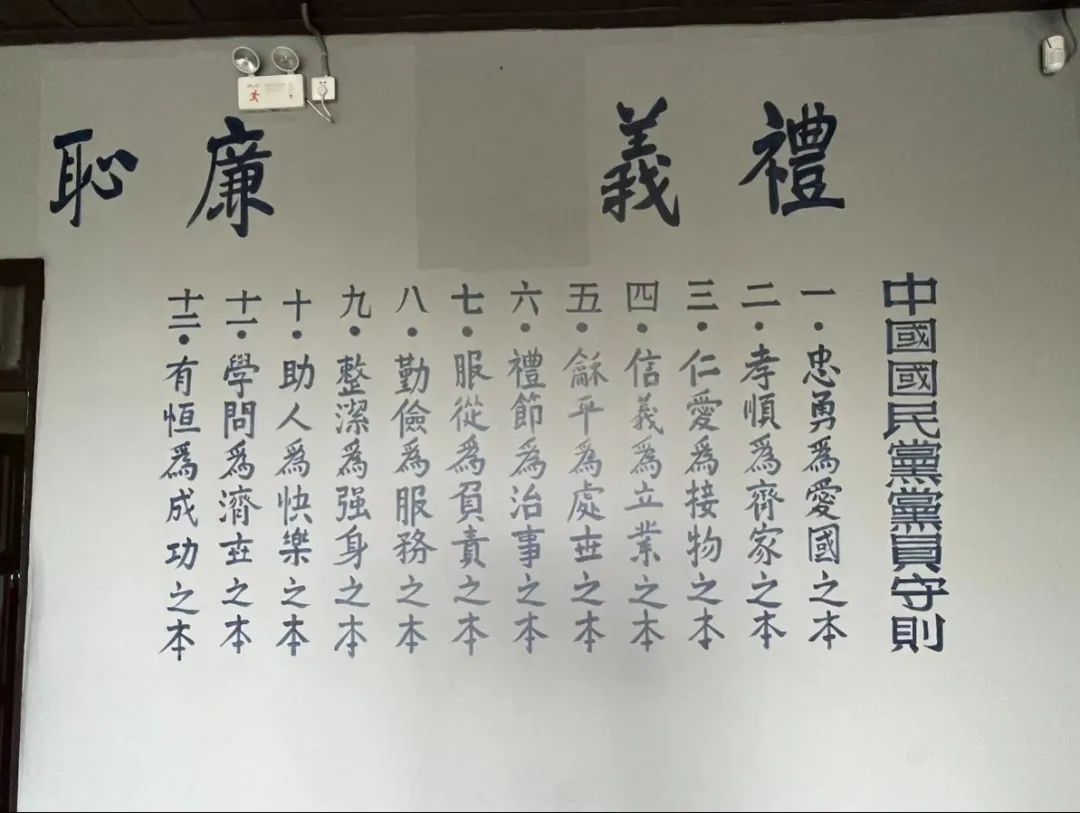 禮義廉恥
中國國民黨黨員守則
一·忠勇爲愛國之本
二·孝順爲齊家之本
三·仁愛爲接物之本
四·信義爲立業之本
五·龢平爲處世之本
六·禮節爲治事之本
七·服從爲負責之本
八·勤儉爲服務之本
九·整潔爲强身之本
十·助人爲快樂之本
十一·學問爲濟世之本
十二·有恒爲成功之本